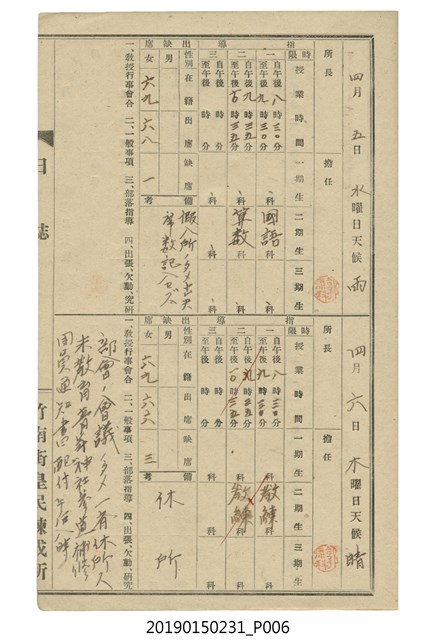 四月五日 水曜日 天候 雨
所長
擔任
指導
時限 授業時間 一期生 二期生 三期生
一 自午後八時三〇分 至午後九時三〇分 科 國語 科 科
二 自午後九時三五分 至午後一〇時三五分 科 算數 科 科
三 自午後 時 分 至午後 時 分 科 科 科
出缺席
性別 在籍 出席 缺席 備考
男
女 六九 六八 一
一、教授行事會合 二、一般事項 三、部落指導 四、出張、欠勤、研究
日誌
四月六日 木曜日 天候 晴
所長
擔任
指導
時限 授業時間 一期生 二期生 三期生
一 自午後八時三〇分 至午後九時三〇分 科 教練 科 科
二 自午後九時三五分 至午後一〇時三五分 科 教練 科 科
三 自午後 時 分 至午後 時 分 科 科 科
出缺席
性別 在籍 出席 缺席 備考
男
女 六九 六六 三
休所
一、教授行事會合 二、一般事項 三、部落指導 四、出張、欠勤、研究
部會ノ會議ノタメ一齊休所ス
竹南街皇民鍊成所
20190150231_P006